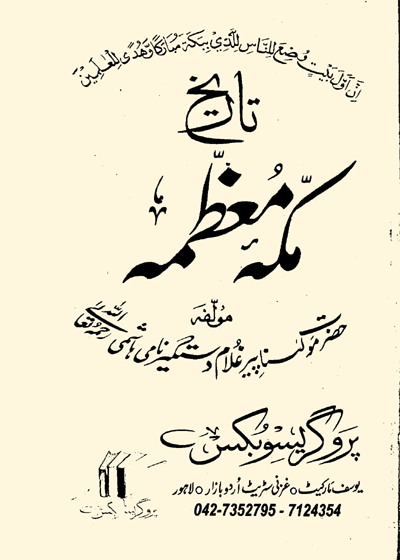 اِنَّ اَوَّلَ بَیْتٍ وُّضِعَ لِلنَّاسِ لَلَّذِیْ بِبَکَّۃَ مُبَارَکًا وَّهُدًی لِّلْعٰلَمِیْنَ
تاریخ
مکّۂ معُظّمہ
مُولّفہ
حضرت مولٰنا پیر غُلام دستگیر نامی ہاشمی رحمۃ اللہ تعالٰے
پروگریسو بکس
یوسف مارکیٹ ○ غزنی سٹریٹ اُردو بازار ○ لاہور
042-7352795 - 7124354
پروگریسو بکس